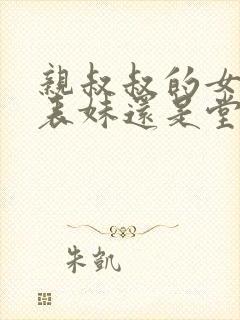 親叔叔的女
表妹還是堂
朱凱